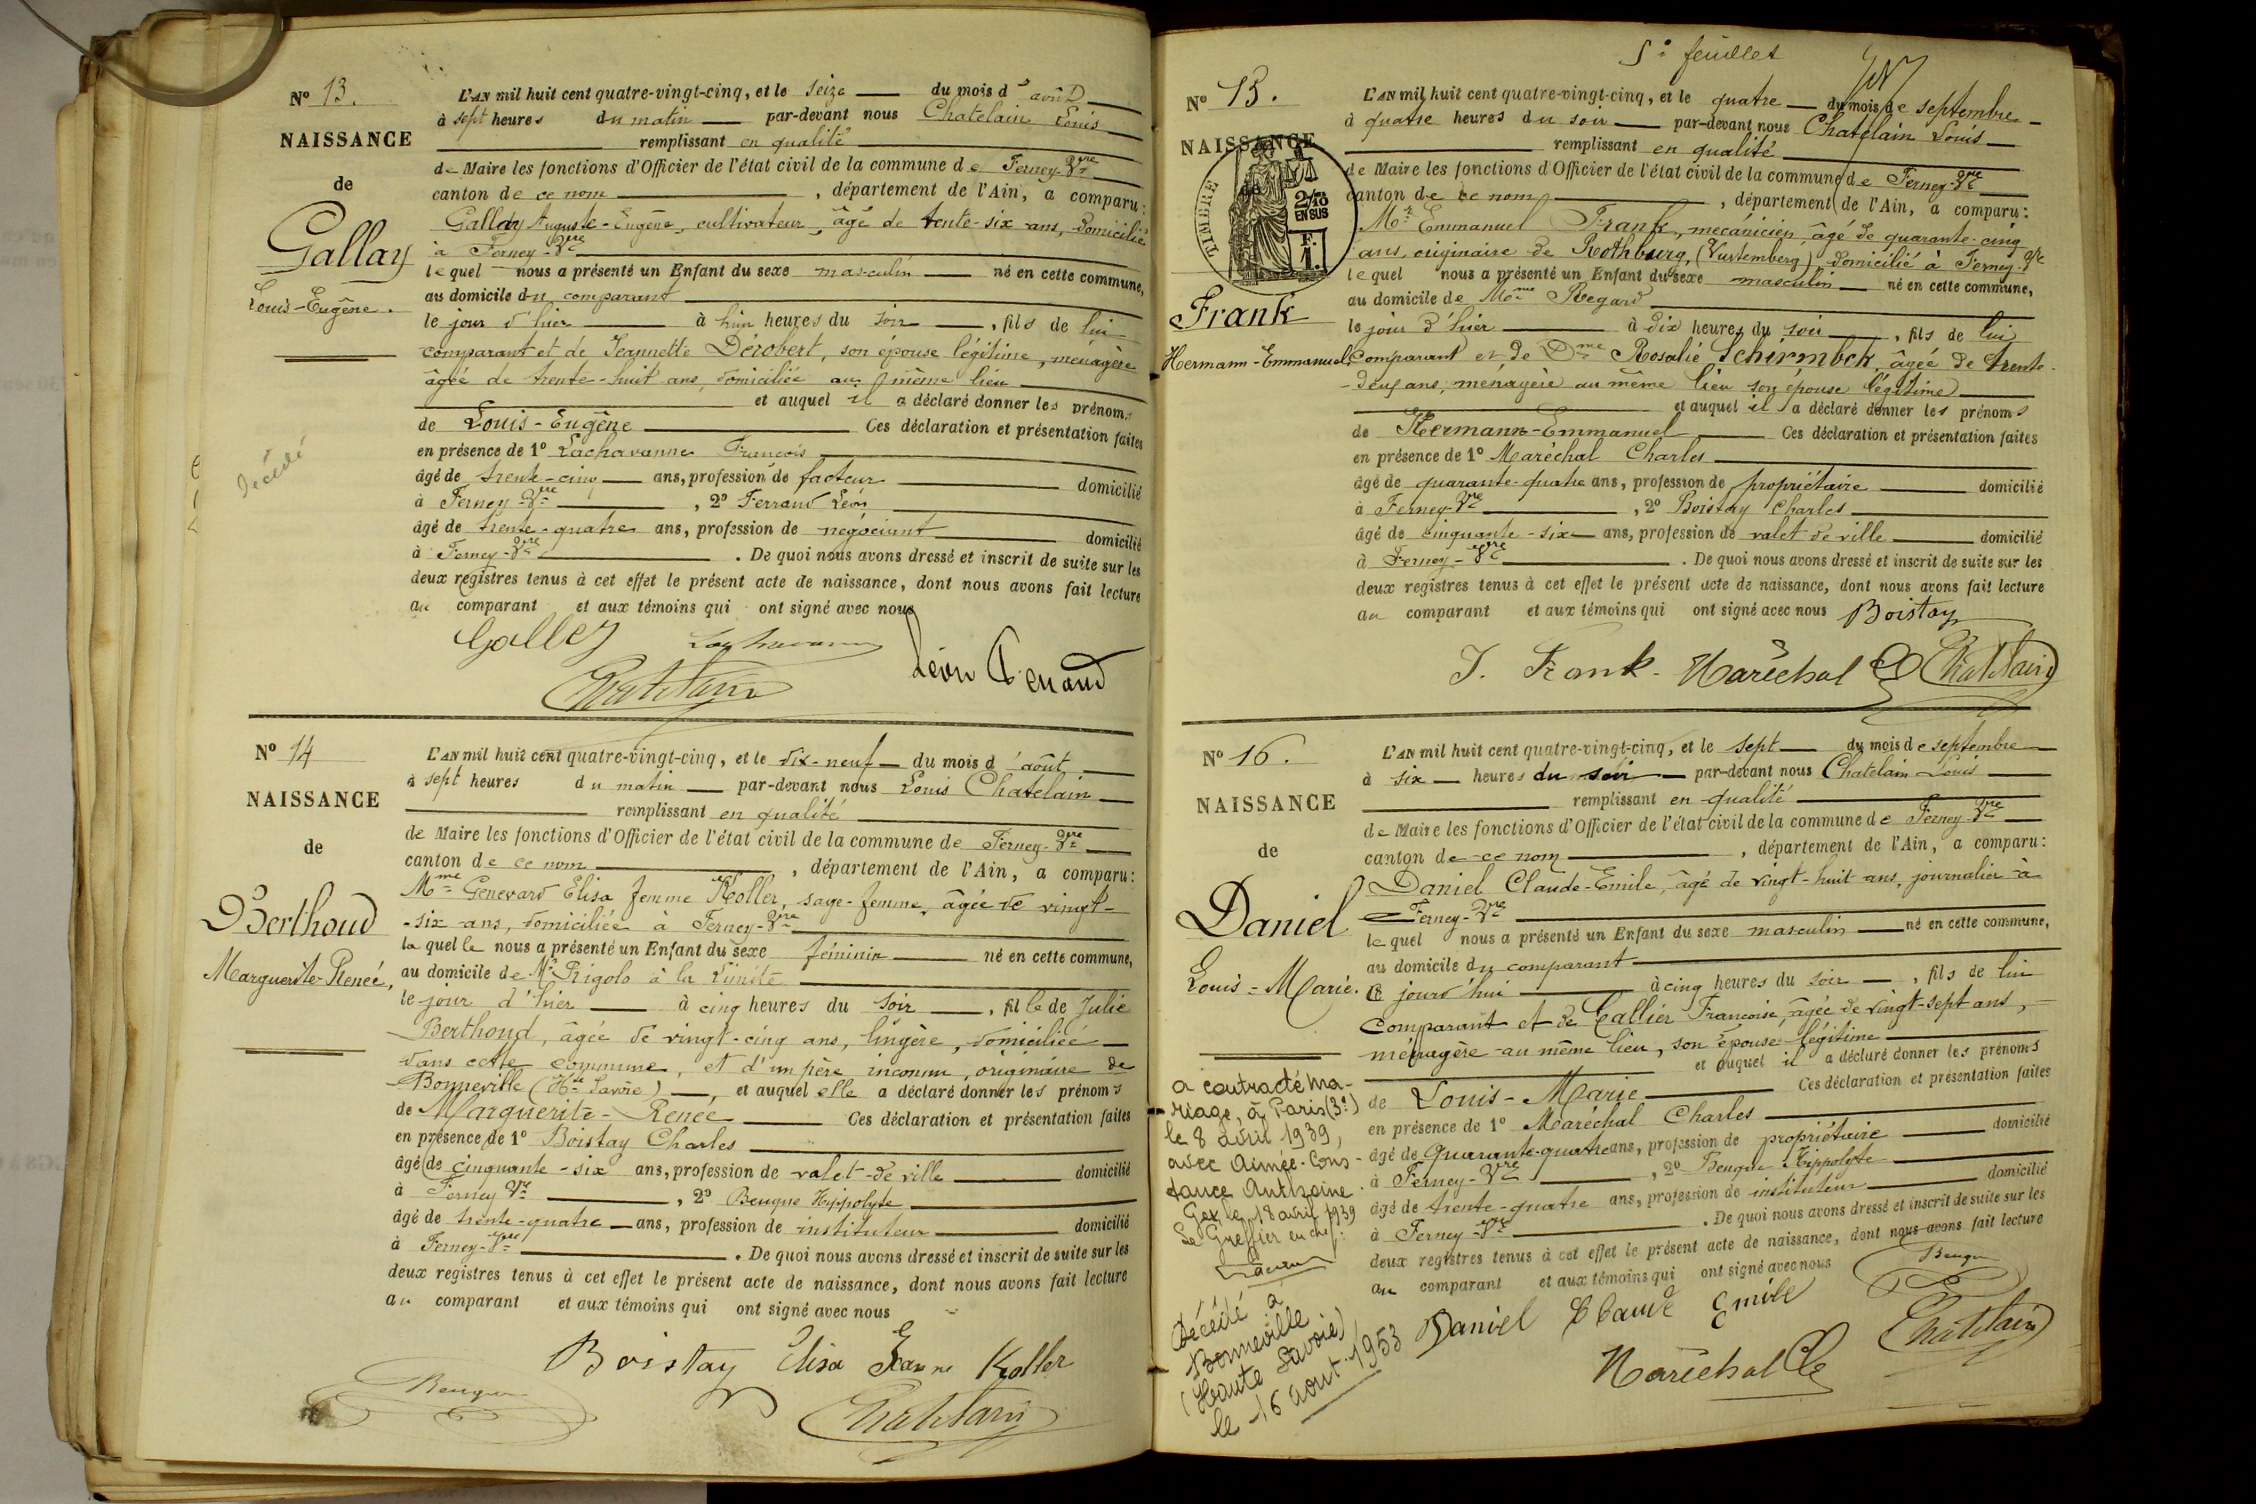 Nº 13.
NAISSANCE
de
Gallay
Louis-Eugène.
Décédé
L'AN mil huit cent quatre-vingt-cinq, et le seize du mois d'août
à sept heures du matin par-devant nous Chatelain Louis
remplissant en qualité
de Maire les fonctions d'Officier de l'état civil de la commune de Ferney-Vre
canton de ce nom, département de l'Ain, a comparu:
Gallay Auguste-Eugène, cultivateur, âgé de trente-six ans, domicilié
à Ferney-Vre
lequel nous a présenté un Enfant du sexe masculin né en cette commune,
au domicile du comparant
le jour d'hier à huit heures du soir, fils de lui
comparant et de Jeannette Dérobert, son épouse légitime, ménagère
âgée de trente-huit ans, domiciliée au même lieu
et auquel il a déclaré donner les prénoms
de Louis-Eugène Ces déclaration et présentation faites
en présence de 1º Lachavanne François
âgé de trente-cinq ans, profession de facteur domicilié
à Ferney-Vre, 2º Ferraud Léon
âgé de trente-quatre ans, profession de négociant domicilié
à Ferney-Vre. De quoi nous avons dressé et inscrit de suite sur les
deux registres tenus à cet effet le présent acte de naissance, dont nous avons fait lecture
au comparant et aux témoins qui ont signé avec nous
Galley Lachavanne
Chatelain Léon Feraud
Nº 14
NAISSANCE
de
Berthoud
Marguerite-Renée,
L'AN mil huit cent quatre-vingt-cinq, et le dix-neuf du mois d'août
à sept heures du matin par-devant nous Louis Chatelain
remplissant en qualité
de Maire les fonctions d'Officier de l'état civil de la commune de Ferney-Vre
canton de ce nom, département de l'Ain, a comparu:
Mme Genevard Elisa femme Koller, sage-femme, âgée de vingt-
-six ans, domiciliée à Ferney-Vre
laquelle nous a présenté un Enfant du sexe féminin né en cette commune,
au domicile de Mr Rigolo à la Limite
le jour d'hier à cinq heures du soir, fille de Julie
Berthoud, âgée de vingt-cinq ans, lingère, domiciliée
dans cette commune, et d'un père inconnu, originaire de
Bonneville (Hte Savoie), et auquel elle a déclaré donner les prénoms
de Marguerite-Renée Ces déclaration et présentation faites
en présence de 1º Boistay Charles
âgé de cinquante-six ans, profession de valet-de-ville domicilié
à Ferney Vre, 2º Beugne Hippolyte
âgé de trente-quatre ans, profession de instituteur domicilié
à Ferney-Vre. De quoi nous avons dressé et inscrit de suite sur les
deux registres tenus à cet effet le présent acte de naissance, dont nous avons fait lecture
au comparant et aux témoins qui ont signé avec nous
Boistay Elisa Jeanne Koller
Beugne Chatelain
5e feuillet
Nº 15.
NAISSANCE
de
TIMBRE
2/10 EN SUS
F. 1.
Frank
Hermann-Emmanuel
L'AN mil huit cent quatre-vingt-cinq, et le quatre du mois de septembre
à quatre heures du soir par-devant nous Chatelain Louis
remplissant en qualité
de Maire les fonctions d'Officier de l'état civil de la commune de Ferney-Vre
canton de ce nom, département de l'Ain, a comparu:
Mr Emmanuel Frank, mécanicien âgé de quarante-cinq
ans, originaire de Rothburg, (Vurtemberg) domicilié à Ferney-Vre
lequel nous a présenté un Enfant du sexe masculin né en cette commune,
au domicile de Mme Regard
le jour d'hier à dix heures du soir, fils de lui
comparant et de Dme Rosalie Schirmbck, âgée de trente-
-deux ans, ménagère au même lieu son épouse légitime
et auquel il a déclaré donner les prénoms
de Hermann-Emmanuel Ces déclaration et présentation faites
en présence de 1º Maréchal Charles
âgé de quarante-quatre ans, profession de propriétaire domicilié
à Ferney-Vre, 2º Boistay Charles
âgé de cinquante-six ans, profession de valet de ville domicilié
à Ferney-Vre. De quoi nous avons dressé et inscrit de suite sur les
deux registres tenus à cet effet le présent acte de naissance, dont nous avons fait lecture
au comparant et aux témoins qui ont signé avec nous Boistay
J. Frank. Maréchal Ch Chatelain
Nº 16.
NAISSANCE
de
Daniel
Louis-Marie.
a contracté ma-
riage, à Paris (3e)
le 8 avril 1939,
avec Aimée-Cons-
tance Anthoine.
Gex, le 18 avril 1939
Le Greffier en chef:
Décédé à
Bonneville
(Haute Savoie)
le 16 aout 1953
L'AN mil huit cent quatre-vingt-cinq, et le sept du mois de septembre
à six heures du soir par-devant nous Chatelain Louis
remplissant en qualité
de Maire les fonctions d'Officier de l'état civil de la commune de Ferney-Vre
canton de ce nom, département de l'Ain, a comparu:
Daniel Claude-Emile, âgé de vingt-huit ans, journalier à
Ferney-Vre
lequel nous a présenté un Enfant du sexe masculin né en cette commune,
au domicile du comparant
ce jourd'hui à cinq heures du soir, fils de lui
comparant et de Callier Françoise, âgée de vingt-sept ans,
ménagère au même lieu, son épouse légitime
et auquel il a déclaré donner les prénoms
de Louis-Marie Ces déclaration et présentation faites
en présence de 1º Maréchal Charles
âgé de Quarante-quatre ans, profession de propriétaire domicilié
à Ferney-Vre, 2º Beugne Hippolyte
âgé de trente-quatre ans, profession de instituteur domicilié
à Ferney-Vre. De quoi nous avons dressé et inscrit de suite sur les
deux registres tenus à cet effet le présent acte de naissance, dont nous avons fait lecture
au comparant et aux témoins qui ont signé avec nous Beugne
Daniel Claude Emile Chatelain
Maréchal Ch